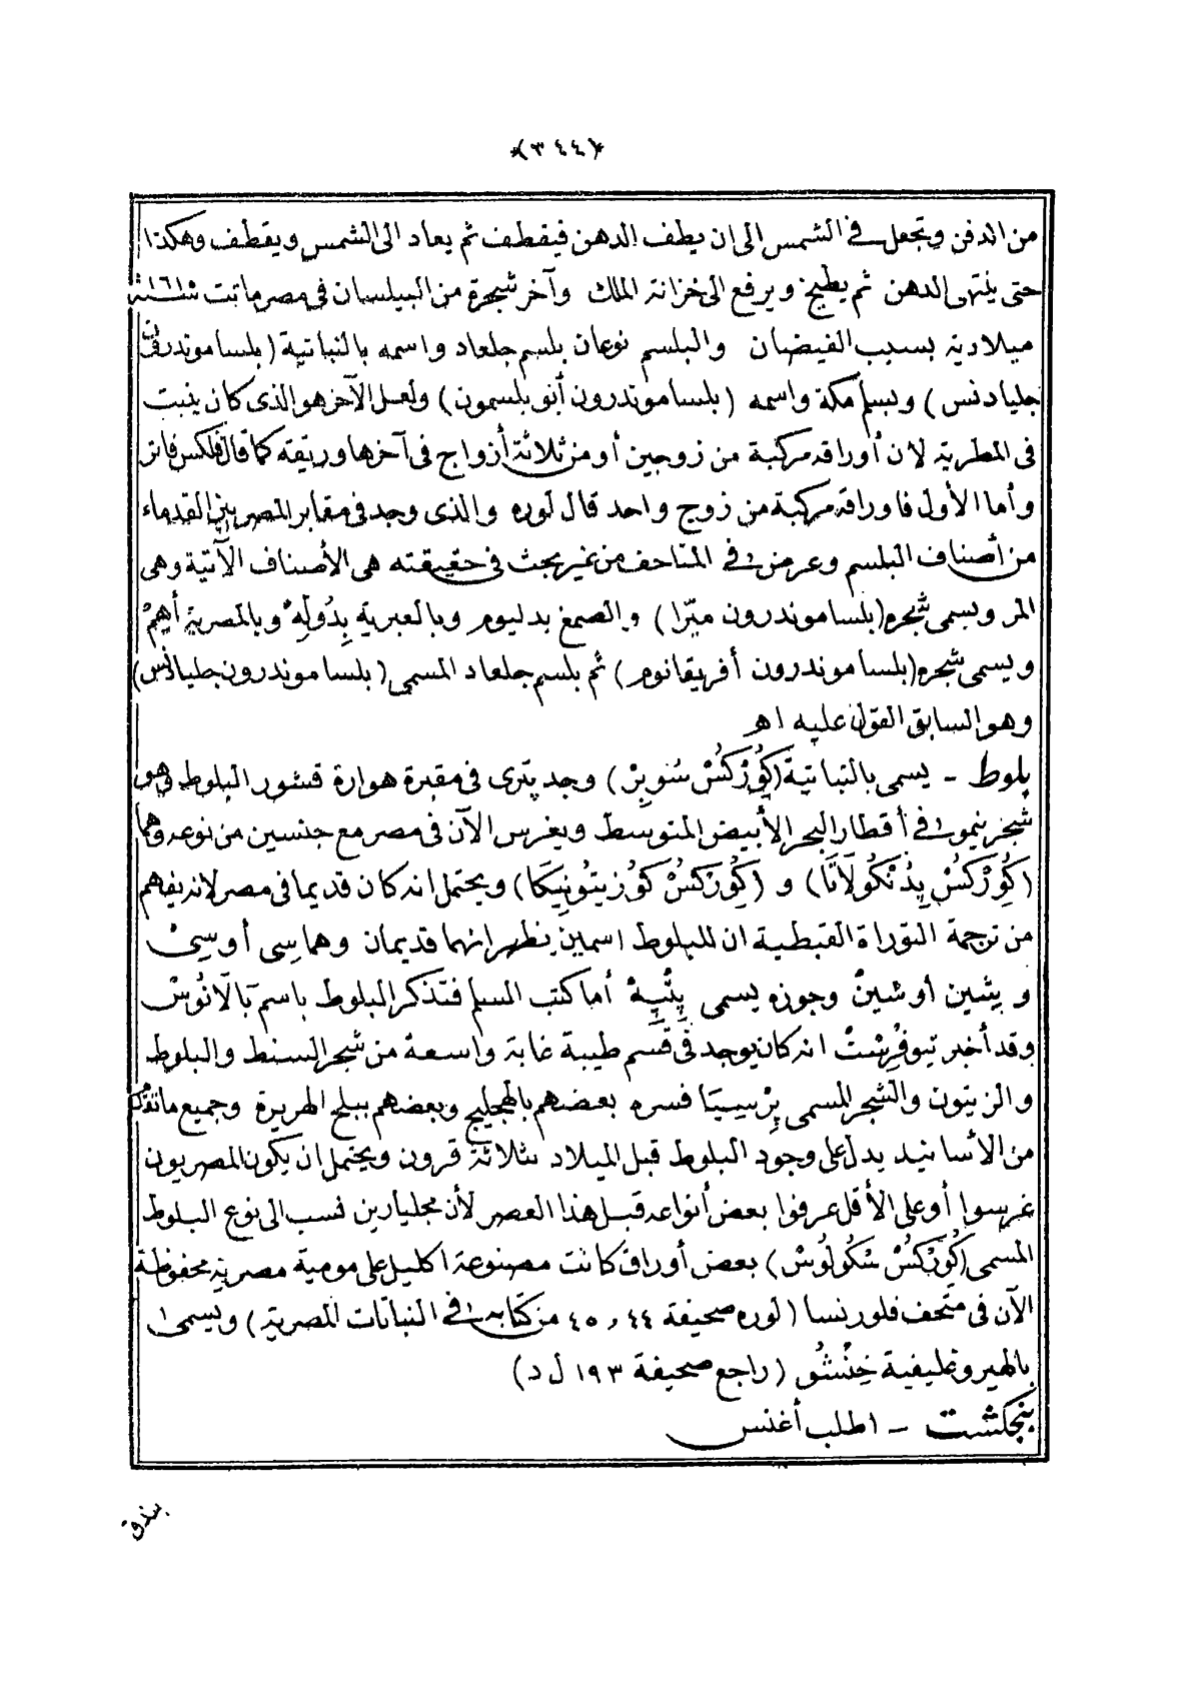 *(٣٤٤)*
من الدفن وتجعل فى الشمس الى ان يطف الدهن فيقطف ثم يعاد الى الشمس ويقطف وهكذا
حتى ينتهى الدهن ثم يطبخ ويرفع الى خزانة الملك وآخر شجرة من البيلسان فى مصر ماتت سنة ١٦١٥
ميلادية بسبب الفيضان والبلسم نوعان بلسم جلعاد واسمه بالنباتية (بلساموندرون
جلياد نس) وبلسم مكة واسمه (بلساموندرون أبو بلسمون) ولعل الآخر هو الذى كان ينبت
فى المطرية لان أوراقه مركبة من زوجين أو من ثلاثة أزواج فى آخرها وريقة كما قال فلكس فاتر
وأما الأول فاوراقه مركبة من زوج واحد قال لوره والذى وجد فى مقابر المصريين القدماء
من أصناف البلسم وعرض فى المتاحف من غير بحث فى حقيقته هى الأصناف الآتية وهى
المر ويسمى شجره (بلساموندرون ميرّا) والصمغ بدليوم وبالعبرية بِدُولِهْ وبالمصرية أَهِمْ
ويسمى شجره (بلساموندرون أفريقانوم) ثم بلسم جلعاد المسمى (بلساموندرون جليادنس)
وهو السابق القول عليه اهـ
بلوط - يسمى بالنباتية (كُوِرْكُسْ سُوبِرْ) وجد پترى فى مقبرة هوارة قشور البلوط وهو
شجر ينمو فى أقطار البحر الأبيض المتوسط ويغرس الآن فى مصر مع جنسين من نوعه وهما
(كُوِرْكُسْ پِدُنْكُولَاتَا) و (كُوِرْكُسْ كُوزِيتُونِيكَا) ويحتمل انه كان قديما فى مصر لانه يفهم
من ترجمة التوراة القبطية ان للبلوط اسمين يظهر انهما قديمان وهما سِى أوسِىْ
ويشين أوشينْ وجوزه يسمى پِنْپِهْ أما كتب السلم فتذكر البلوط باسم بَالَانُوسْ
وقد أخبر تيوفرِسْتْ انه كان يوجد فى قسم طيبة غابة واسعة من شجر السنط والبلوط
والزيتون والشجر المسمى پِرْسِيَا فسره بعضهم بالهجليج وبعضهم ببلح الهريرة وجميع ما تقدم
من الأسانيد يدل على وجود البلوط قبل الميلاد بثلاثة قرون ويحتمل ان يكون المصريون
غرسوا أو على الأقل عرفوا بعض أنواعه قبل هذا العصر لأن مجليارين نسب الى نوع البلوط
المسمى (كُوِرْكُسْ سْكُولُوسْ) بعض أوراق كانت مصنوعة اكليل على مومية مصرية محفوظة
الآن فى متحف فلورنسا (لوره صحيفة ٤٤ و ٤٥ من كتابه فى النباتات المصرية) ويسمى
بالهيروغليفية خِنْشُو (راجع صحيفة ١٩٣ ل د)
بنجكشت - اطلب أغنس
بندق